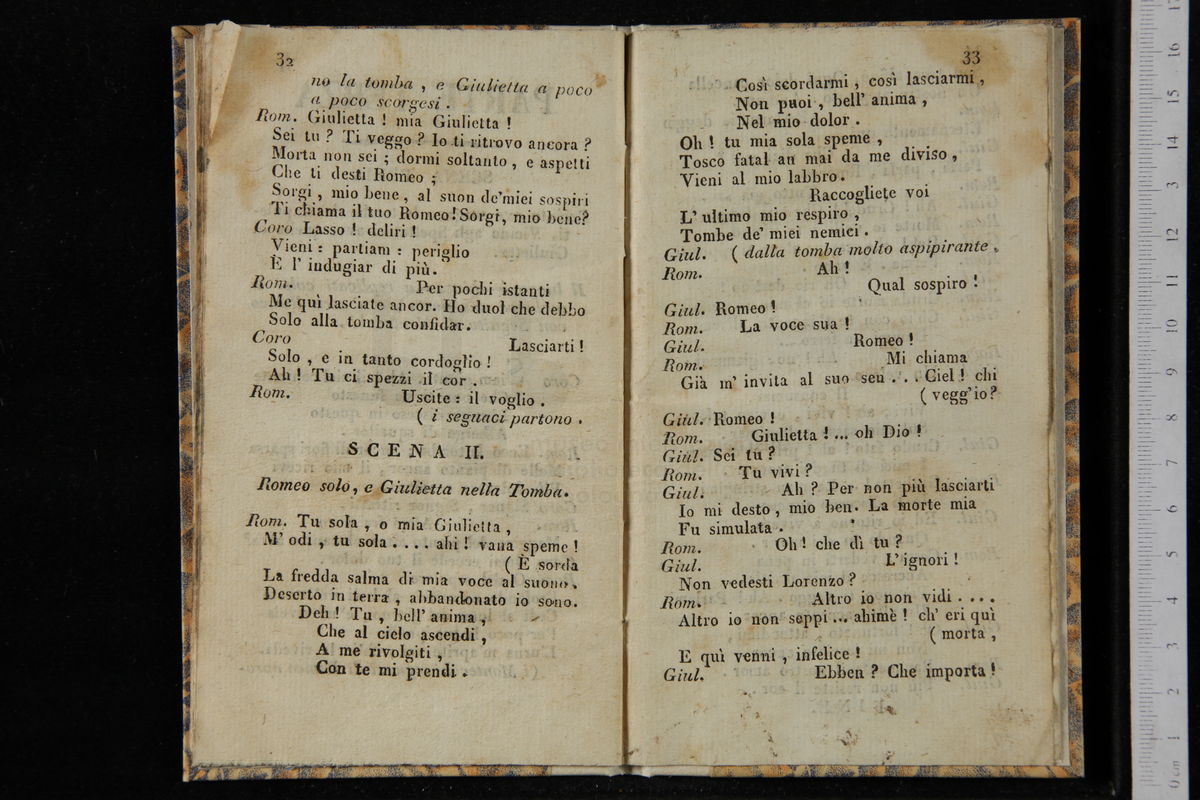 32
no la tomba , e Giulietta a poco
a poco scorgesi .
Rom. Giulietta ! mia Giulietta !
Sei tu ? Ti veggo ? Io ti ritrovo ancora ?
Morta non sei ; dormi soltanto , e aspetti
Che ti desti Romeo ;
Sorgi , mio bene , al suon de'miei sospiri
Ti chiama il tuo Romeo! Sorgi, mio bene?
Coro Lasso ! deliri !
Vieni : partiam : periglio
È l' indugiar di più.
Rom. Per pochi istanti
Me quì lasciate ancor. Ho duol che debbo
Solo alla tomba confidar.
Coro Lasciarti !
Solo , e in tanto cordoglio !
Ah ! Tu ci spezzi il cor .
Rom. Uscite : il voglio .
( i seguaci partono .
SCENA II.
Romeo solo, e Giulietta nella Tomba.
Rom. Tu sola , o mia Giulietta ,
M' odi , tu sola . . . . ahi ! vana speme !
( È sorda
La fredda salma di mia voce al suono.
Deserto in terra , abbandonato io sono.
Deh ! Tu , bell' anima ,
Che al cielo ascendi ,
A me rivolgiti ,
Con te mi prendi .
33
Così scordarmi , così lasciarmi ,
Non puoi , bell' anima ,
Nel mio dolor .
Oh ! tu mia sola speme ,
Tosco fatal an mai da me diviso ,
Vieni al mio labbro .
Raccogliete voi
L' ultimo mio respiro ,
Tombe de' miei nemici .
Giul. ( dalla tomba molto aspipirante .
Ah !
Rom. Qual sospiro !
Giul. Romeo !
Rom. La voce sua !
Giul. Romeo !
Rom. Mi chiama
Già m' invita al suo sen . . . Ciel ! chi
( vegg'io?
Giul. Romeo !
Rom. Giulietta ! ... oh Dio !
Giul. Sei tu ?
Rom. Tu vivi ?
Giul. Ah ? Per non più lasciarti
Io mi desto , mio ben. La morte mia
Fu simulata .
Rom. Oh ! che dì tu ?
Giul. L' ignori !
Non vedesti Lorenzo ?
Rom. Altro io non vidi . . . .
Altro io non seppi ... ahimè ! ch' eri quì
( morta ,
E quì venni , infelice !
Giul. Ebben ? Che importa !